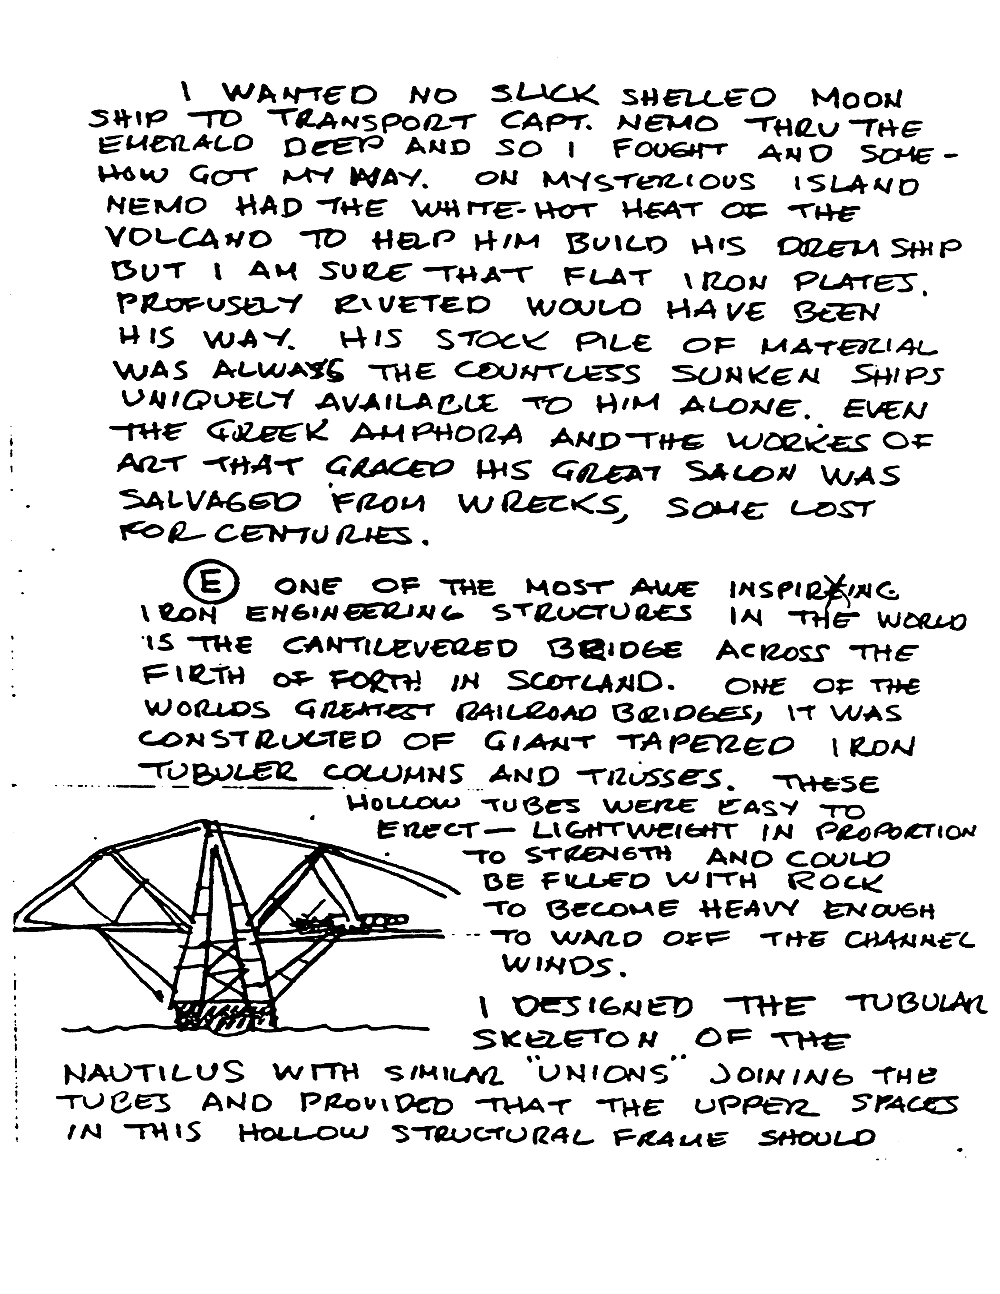 I WANTED NO SLICK SHELLED MOON
SHIP TO TRANSPORT CAPT. NEMO THRU THE
EMERALD DEEP AND SO I FOUGHT AND SOME-
HOW GOT MY WAY. ON MYSTERIOUS ISLAND
NEMO HAD THE WHITE-HOT HEAT OF THE
VOLCANO TO HELP HIM BUILD HIS DREM SHIP
BUT I AM SURE THAT FLAT IRON PLATES,
PROFUSELY RIVETED WOULD HAVE BEEN
HIS WAY. HIS STOCK PILE OF MATERIAL
WAS ALWAYS THE COUNTLESS SUNKEN SHIPS
UNIQUELY AVAILABLE TO HIM ALONE. EVEN
THE GREEK AMPHORA AND THE WORKES OF
ART THAT GRACED HIS GREAT SALON WAS
SALVAGED FROM WRECKS, SOME LOST
FOR CENTURIES.
E ONE OF THE MOST AWE INSPIRING
IRON ENGINEERING STRUCTURES IN THE WORLD
IS THE CANTILEVERED BRIDGE ACROSS THE
FIRTH OF FORTH IN SCOTLAND. ONE OF THE
WORLDS GREATEST RAILROAD BRIDGES, IT WAS
CONSTRUCTED OF GIANT TAPERED IRON
TUBULER COLUMNS AND TRUSSES. THESE
HOLLOW TUBES WERE EASY TO
ERECT — LIGHTWEIGHT IN PROPORTION
TO STRENGTH AND COULD
BE FILLED WITH ROCK
TO BECOME HEAVY ENOUGH
TO WARD OFF THE CHANNEL
WINDS.
I DESIGNED THE TUBULAR
SKELETON OF THE
NAUTILUS WITH SIMILAR "UNIONS" JOINING THE
TUBES AND PROVIDED THAT THE UPPER SPACES
IN THIS HOLLOW STRUCTURAL FRAME SHOULD